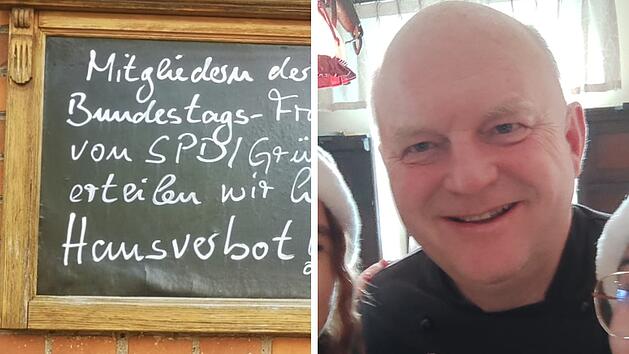 Mitgliedern der
Bundestags-Fra
von SPD/Grü
erteilen wir h
Hausverbot